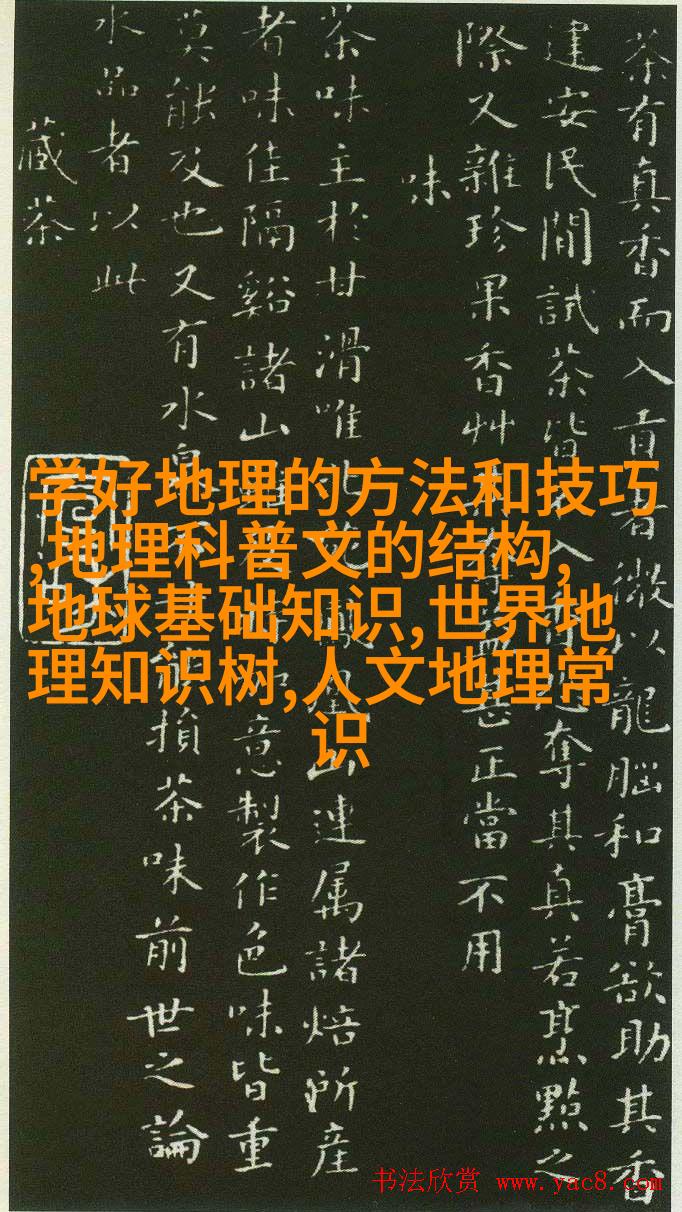 茶有真香而入貢者微以龍腦和膏欲助其香
建安民間試茶皆入香奪其真若烹點之
際又雜珍果香艸甚正當不用
味
茶味主於甘滑唯北山連属諸焙所産
者味佳隔谿諸山意製作色味皆重
莫能及也又有水泉損茶味前世之論
水品者以此
藏茶
学好地理的方法和技巧
,地理科普文的结构,
地球基础知识,世界地
理知识树,人文地理常
识
书法欣赏 www.yac8.com